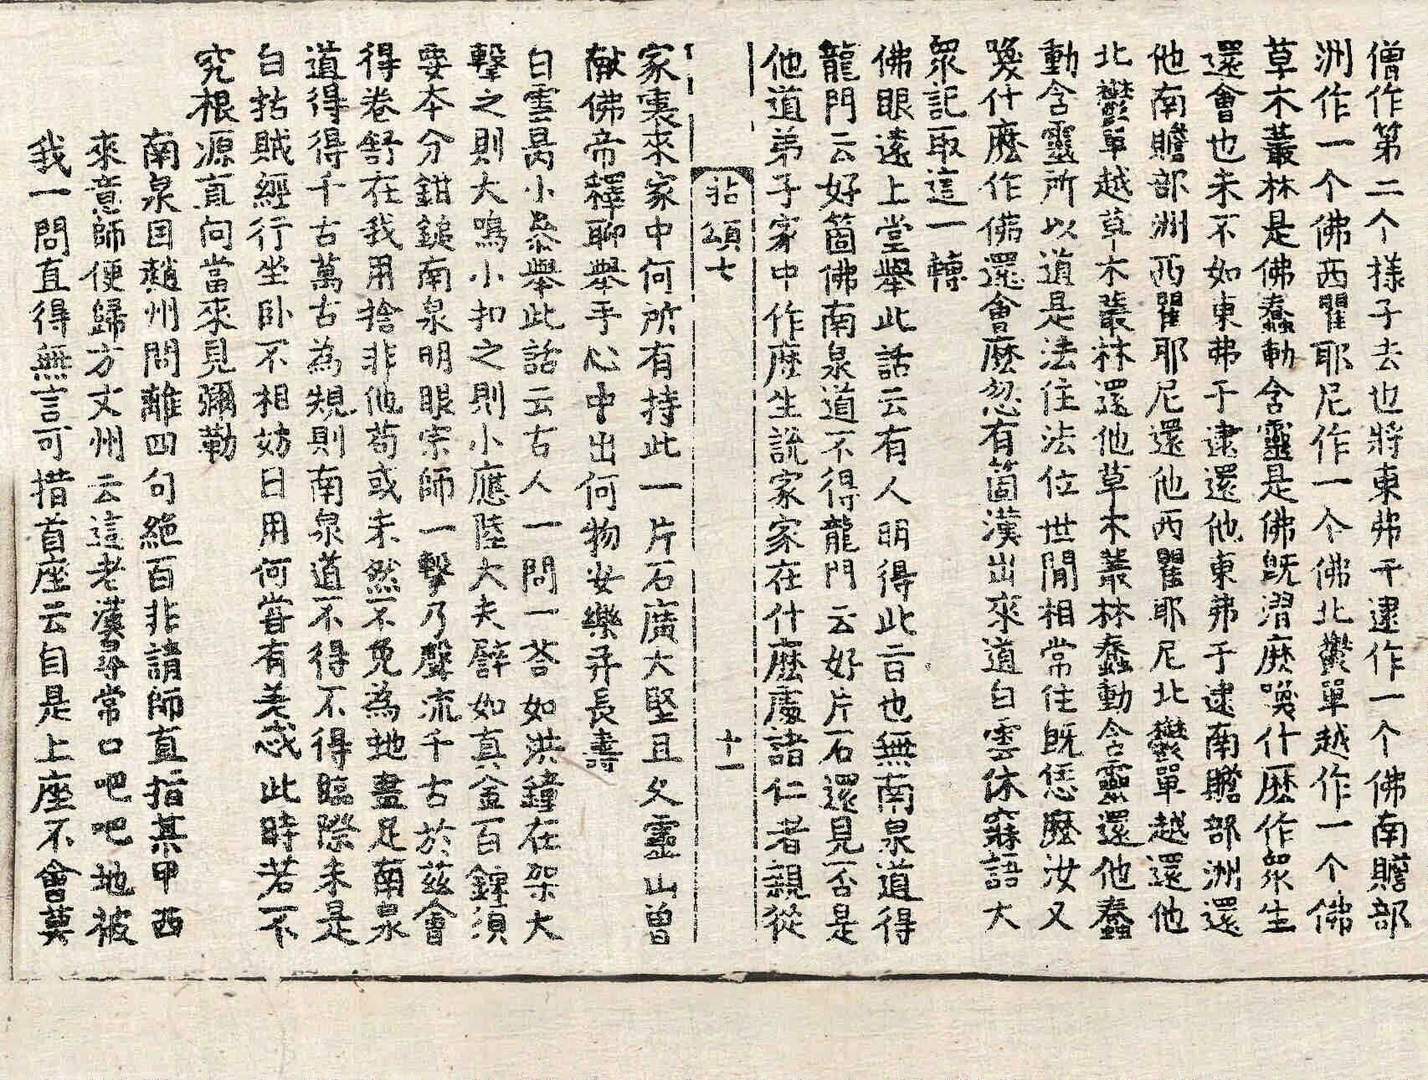 僧作第二个樣子去也將東弗于逮作一个佛南贍部
洲作一个佛西瞿耶尼作一个佛北鬱單越作一个佛
草木叢林是佛蠢動含靈是佛旣渭麽喚什麽作衆生
還會也未不如東弗于逮還他東弗于逮南贍部洲還
他南贍部洲西瞿耶尼還他西瞿耶尼北鬱單越還他
北鬱單越草木叢林還他草木叢林蠢動含靈還他蠢
動含靈所以道是法住法位世間相常住旣恁麽汝又
喚什麽作佛還會麽忽有箇漢出來道白雲休寐語大
衆記取這一轉
佛眼遠上堂舉此話云有人明得此二百也無南泉道得
龍門云好箇佛南泉道不得龍門云好片石還見否是
他道弟子家中作麽生說家家在什麽處諸仁者親從
拈頌七
十一
家裏來家中何所有持此一片石廣大堅且久靈山曾
献佛帝釋聊舉手心中出何物安樂并長壽
白雲昺小叅舉此話云古人一問一荅如洪鐘在架大
擊之則大鳴小扣之則小應陸大夫譬如真金百鍊湏
要本分鉗鎚南泉明眼宗師一擊乃聲流千古於茲會
得卷舒在我用捨非他苟或未然不免為地盡足南泉
道得得千古萬古為䂓則南泉道不得不得臨際未是
白拈賊經行坐卧不相妨日用何甞有差忒此時若不
究根源直向當來見彌勒
南泉因趙州問離四句絶百非請師直指某甲西
來意師便歸方丈州云這老漢尋常口吧吧地被
我一問直得無言可措首座云自是上座不會莫